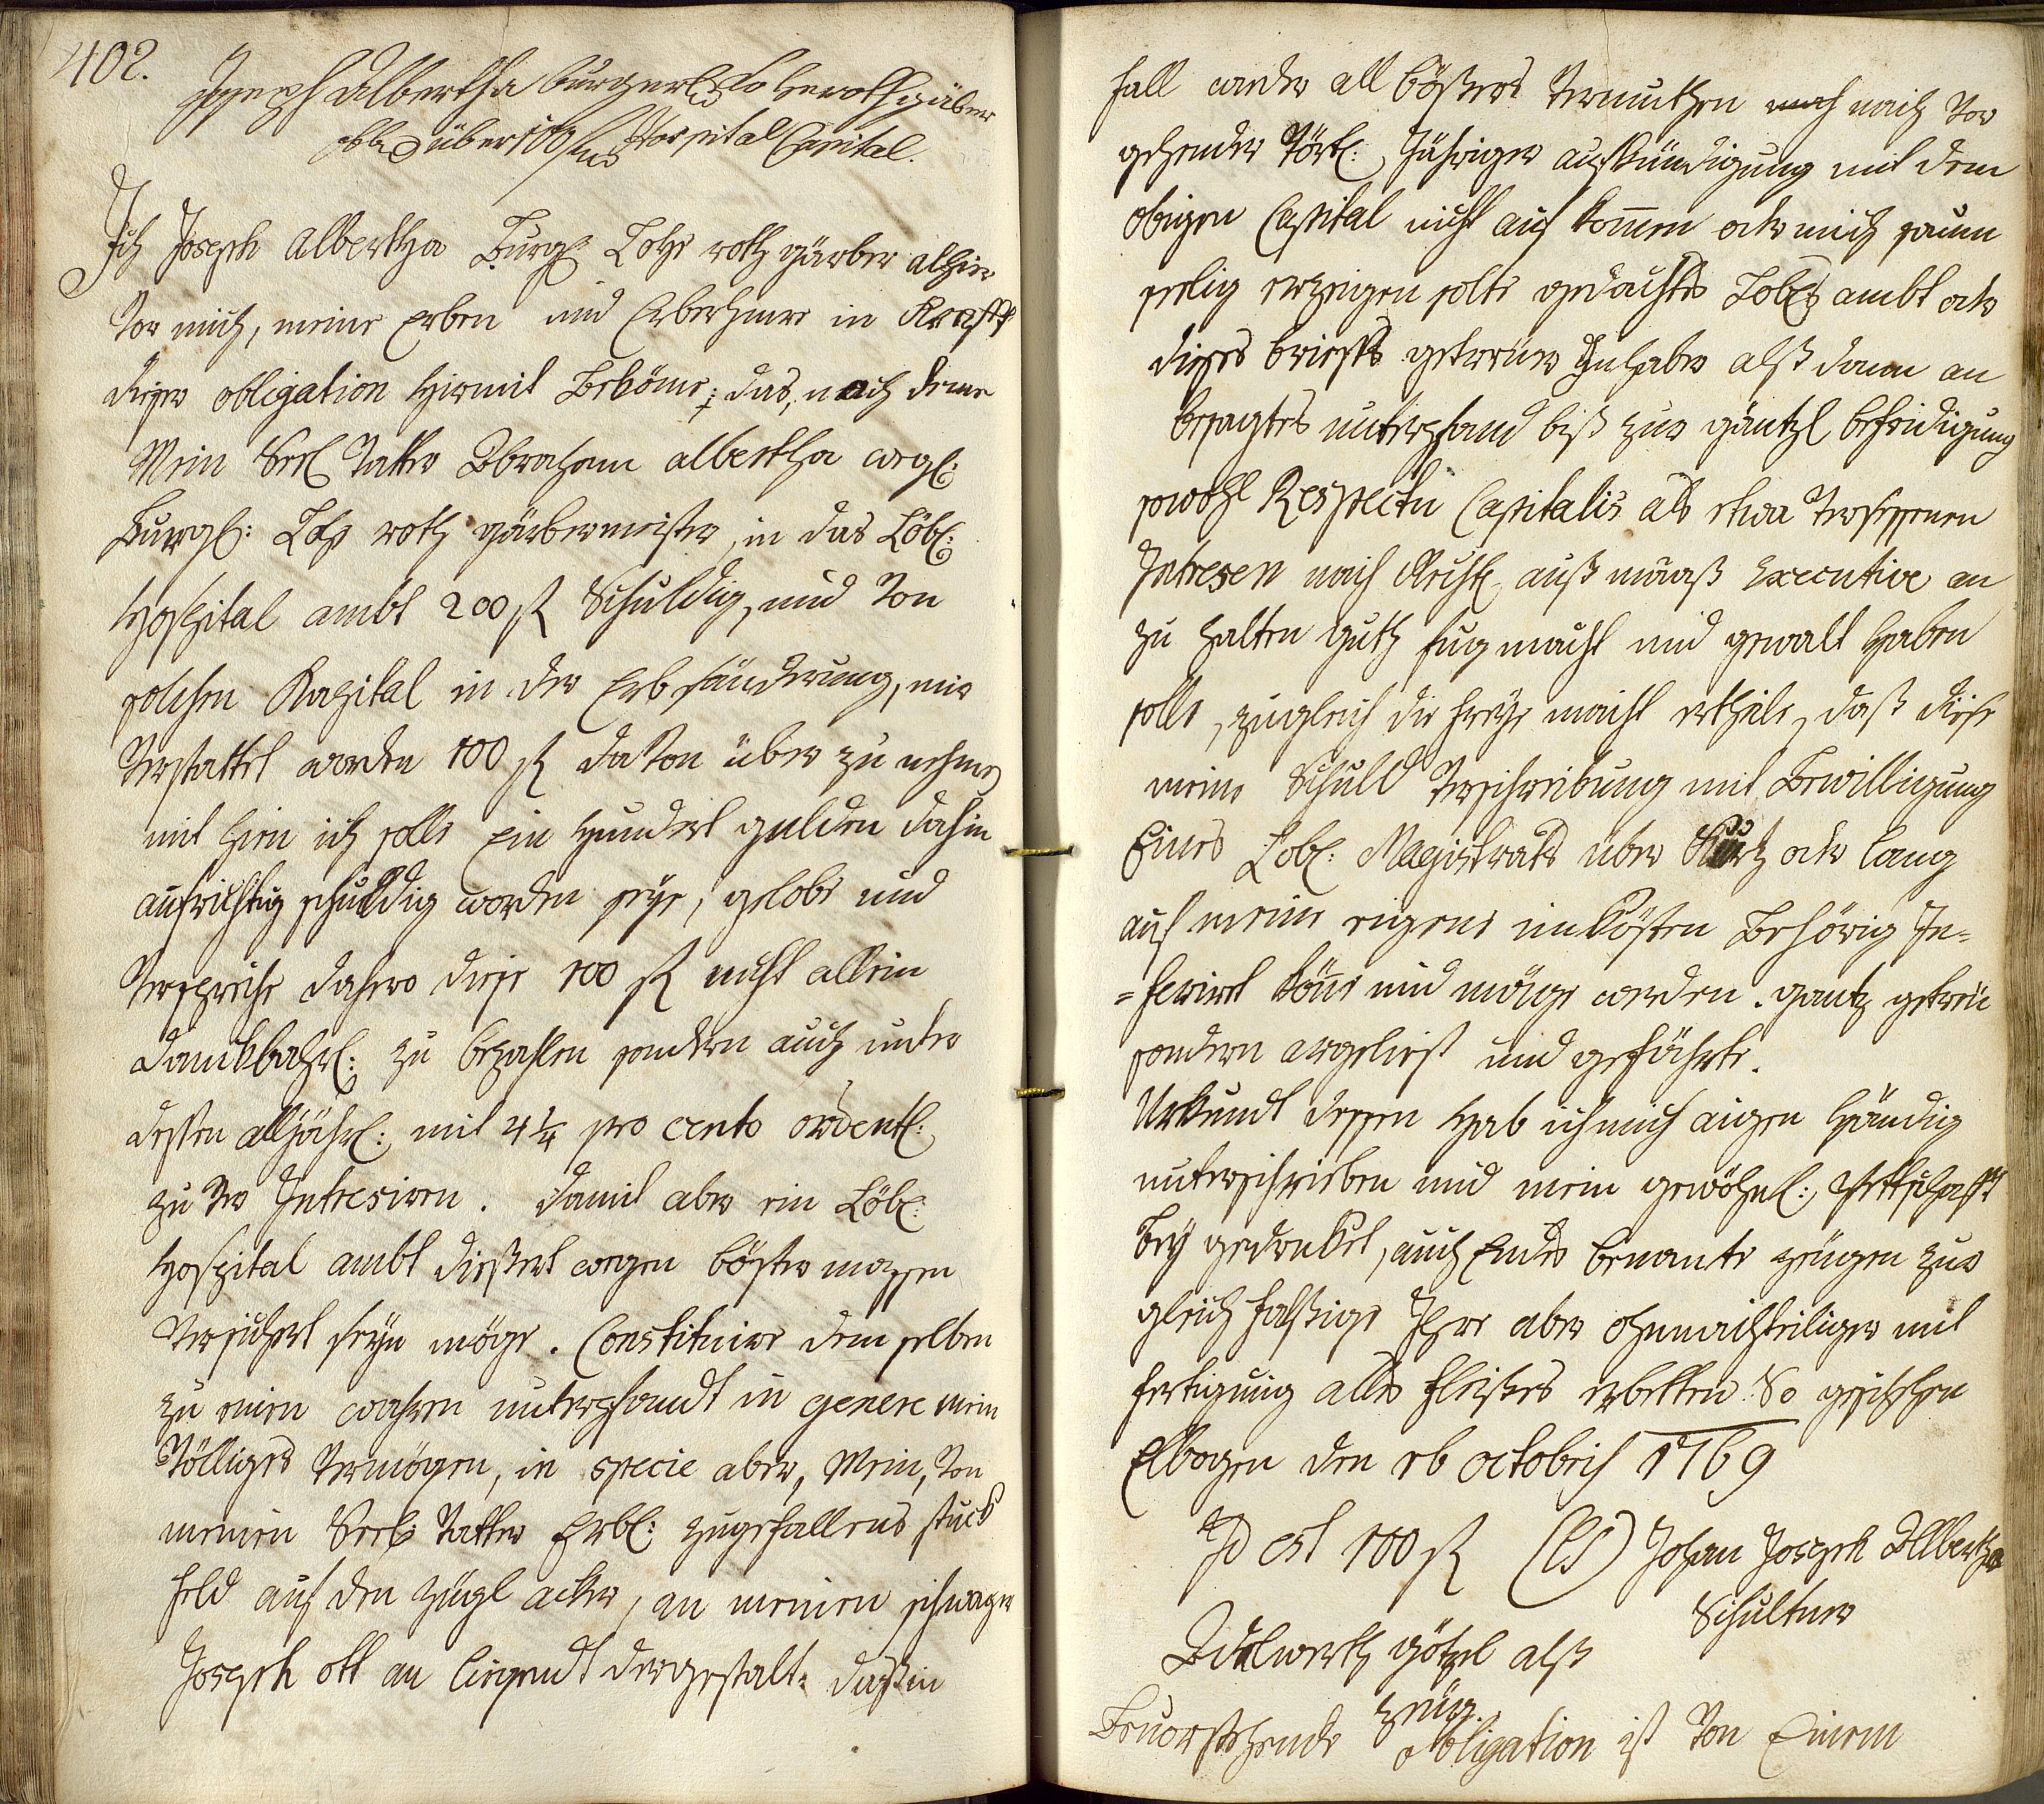 402.
Joseph Albertha burgerl Lo heroth gärber
obligation über 100 f Hospital Capital.
Ich Joseph Albertha Burgl Lohe roth gärber alhier
Vor mich, meine Erben und Erberhmere in Krafft
dieser obligation hirmit Beköme; das, nach deme
Mein Seel Vatter Abraham albertha wegl:
Burgl: Lohe roth gärbermeister, in das Löbl:
Hospital ambt 200 f Schuldig, und Von
solchen Kapital in der Erb sönderung, mir
Verstattet worden 100 f davon über zu nehmen
mit hien ich solle Ein hundert gulden dahin
aufrichtig schuldig worden seye, gelobe und
Verspreche dahero diese 100 f nicht allein
danckbahrl: zu bezahlen sondern auch unter
desten alljährl: mit 4 ¼ pro cento ordentl:
zu Ver Intresiren. damit aber ein Löbl:
Hospital ambt dießert wegen böster massen
Versichert seyn möge. Constituire dem selben
zu einen wahren unterpfandt in genere mein
Völliges Vermögen, in specie aber, Mein, Von
meinen Seel: Vatter Erbl: zugefallenes stuck
feld auf den Zügl acker, an meinen schwager
Joseph ott an liegendt dergestalt: daß in
fall wieder all böseres Vermuthen nach Vor
gehender Vörtl: Jähriger aufkündigung mit dem
obigen Capital nicht auf kommen oder mich saum
seelig erzeigen solte gedachtes Löbl ambt oder
dieses briefes getreuer Inhaber alß dann an
besagtes unterpfand biß zur gäntzl befridigung
sowohl Respectu Capitalis als etwa Versessenen
Intresen nach Rechtl außmaaß Executive an
zu halten guth fug macht und gewalt haben
solle, zugleich die freye macht ertheile, daß diese
meine Schuld Verschreibung mit Bewilligung
Eines Löbl: Magistrats über Kurtz oder lang
auf meine eigene unkösten Behörig In-
=serirt köne und möge werden. gantz getreu
sondern argeliest und gefährte.
Urkundt dessen hab ich mich aigen händig
unterschrieben und mein gewöhnl: Pettschafft
bey gedrucket, auch Endes benante zeugen zur
gleich falßige Ihre aber ohnnachtheiliger mit
fertigung alles fleißes erbetten. So geschehen
Elbogen den 16 octobris 1769
Id est 100 f (LS) Johan Joseph Albertha
Schultner
Adelwerth götzl alß
zeüg.
Beuorstehende obligation ist Von Einem